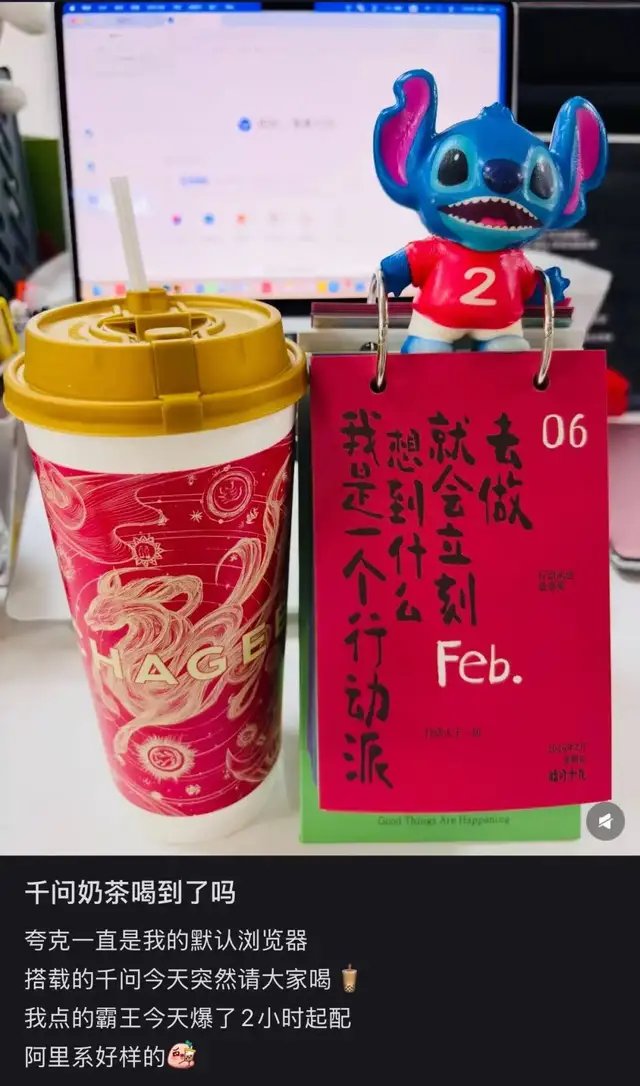 CHAGEE
2
06
去做
就会立刻
想到什么
我是一个行动派
Feb.
腊月十九
Good Things Are Happening
千问奶茶喝到了吗
夸克一直是我的默认浏览器
搭载的千问今天突然请大家喝🧋
我点的霸王今天爆了2小时起配
阿里系好样的